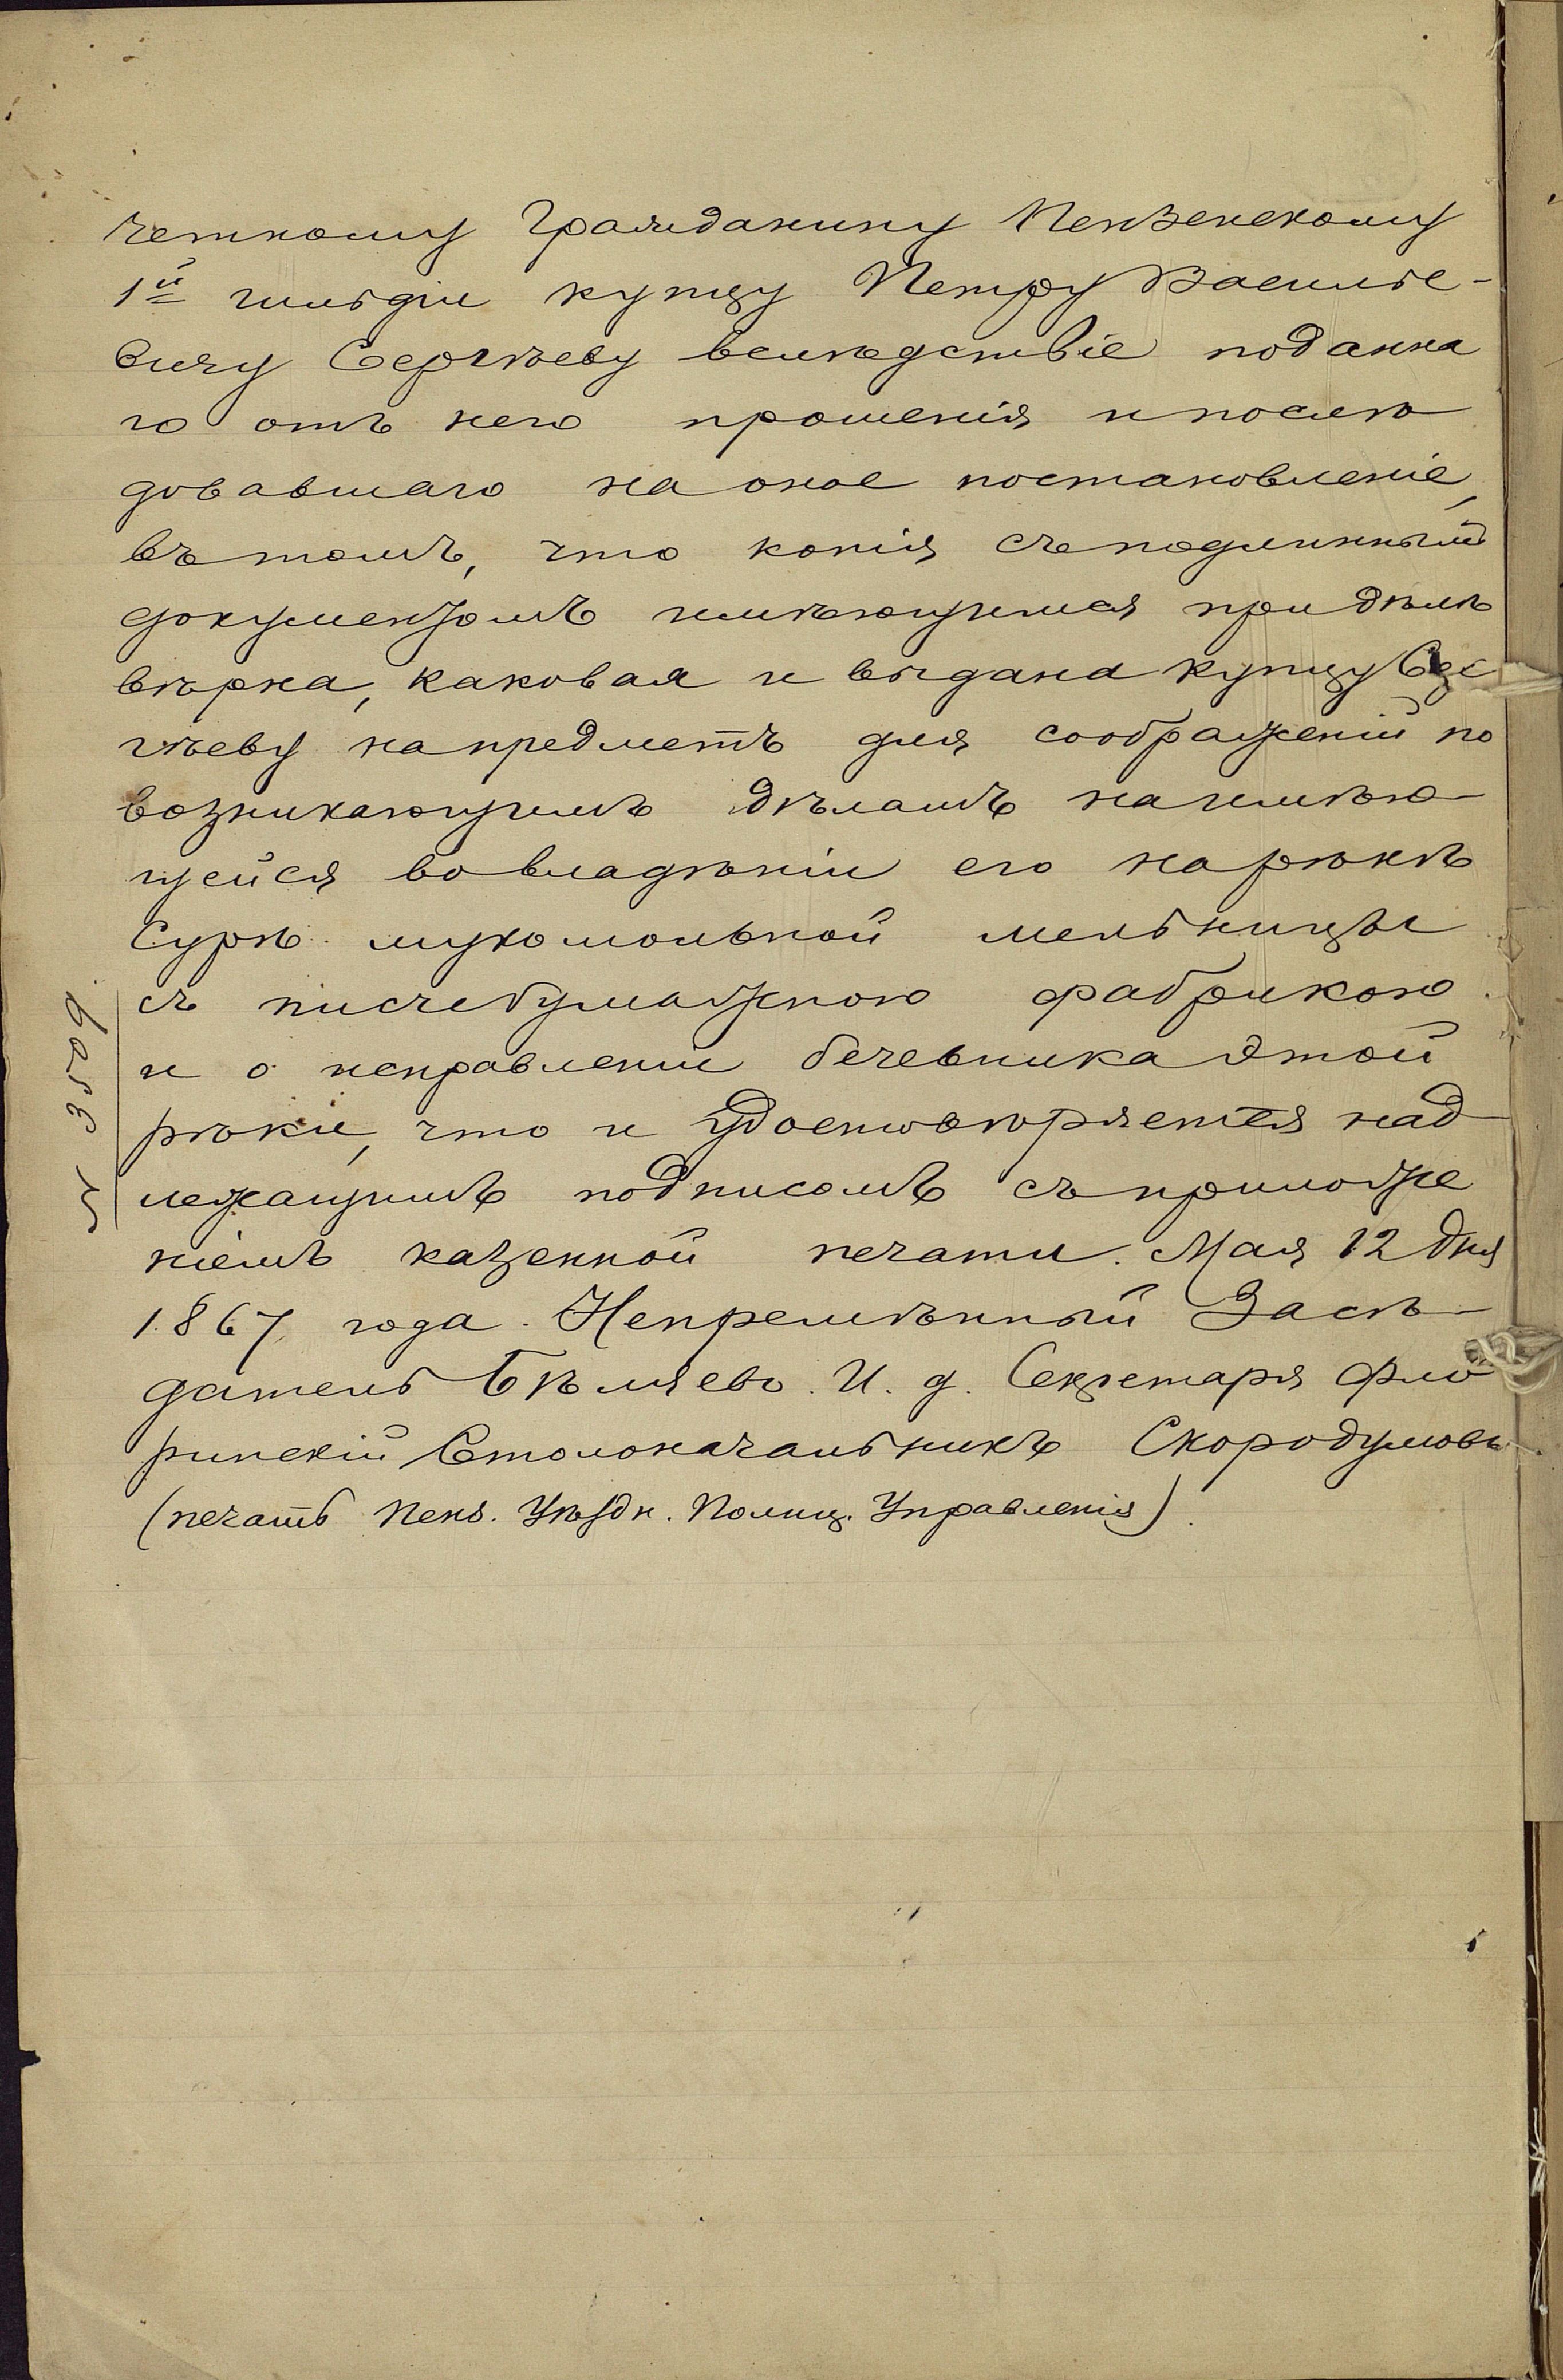 четному Гражданину Пензенскому
1й гильдіи купцу Петру Василье-
вичу Сергѣеву вслѣдствіе поданна
го отъ него прошенія и послѣ
довавшаго на оное постановленіе,
въ томъ, что копія съ подлиннымъ
документомъ имѣющимся при дѣлѣ
вѣрна, каковая и выдана купцу Сер
гѣеву на предметъ для соображеній по
возникающимъ дѣламъ на имѣю-
щейся во владѣніи его на рѣкѣ
Сурѣ мукомольной мельницы
съ писчебумажною фабрикою
и о исправленіи бечевника этой
рѣки, что и удостовѣряется над
лежащимъ подписомъ съ приложе
ніемъ казенной печати. Мая 12 дня
1867 года. Непремѣнный Засѣ-
датель Бѣляевъ. И. д. Секретаря Фло
ринскій Столоначальникъ Скородумовъ.
(печать Пенз. Уѣздн. Полиц. Управленія).
№ 3509